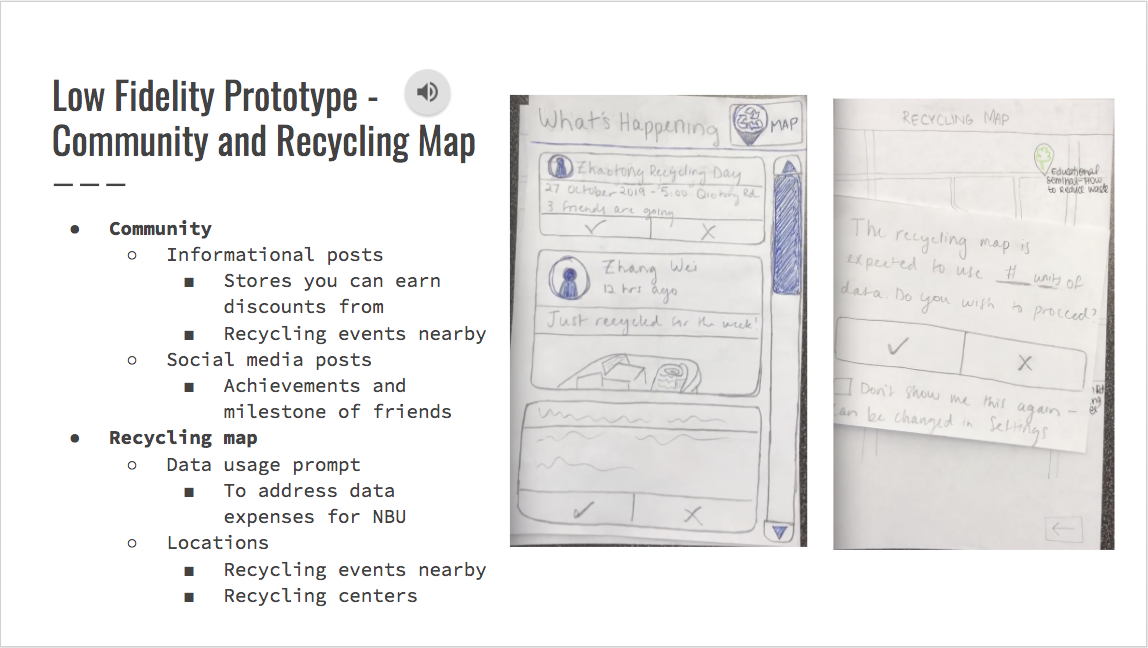 Low Fidelity Prototype -
Community and Recycling Map
● Community
○ Informational posts
■ Stores you can earn
discounts from
■ Recycling events nearby
○ Social media posts
■ Achievements and
milestone of friends
● Recycling map
○ Data usage prompt
■ To address data
expenses for NBU
○ Locations
■ Recycling events nearby
■ Recycling centers
What's Happening
MAP
Zhaotong Recycling Day
27 October 2019 - 5:00 Rd.
3 friends are going
✓ X
Zhang Wei
12 hrs ago
Just recycled for the week!
✓ X
RECYCLING MAP
Educational
Seminar-How
to reduce waste
The recycling map is
expected to use # units of
data. Do you wish to proceed?
✓ X
Don't show me this again -
can be changed in Settings
←